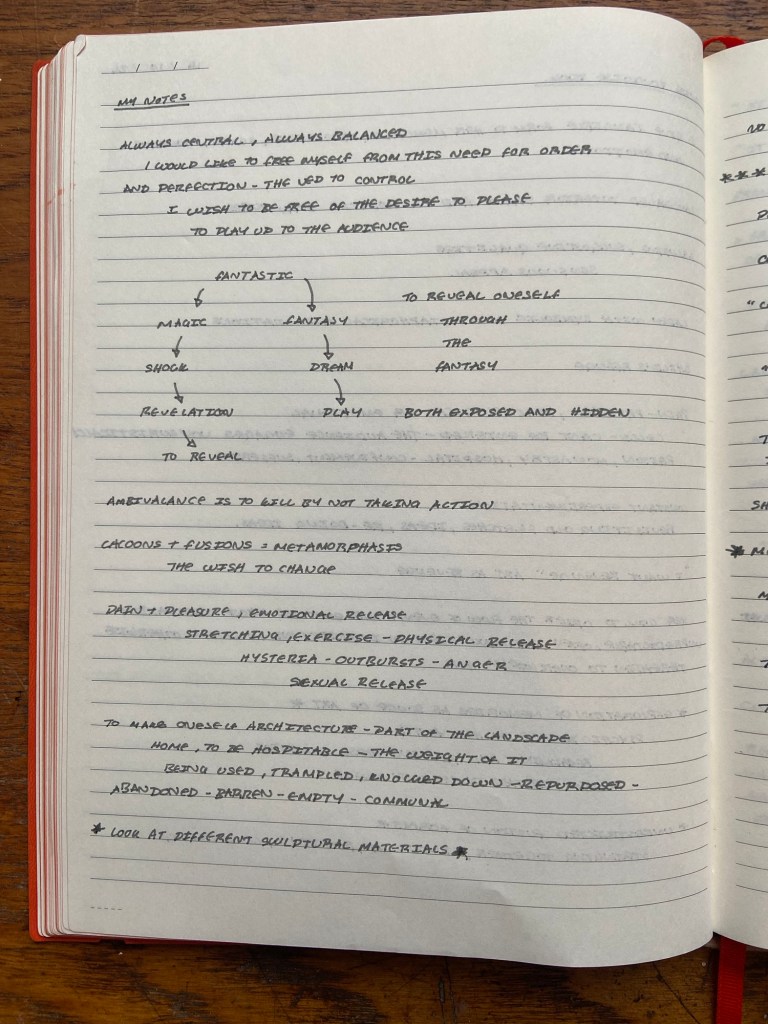 / /
MY NOTES
ALWAYS CENTRAL, ALWAYS BALANCED
I WOULD LIKE TO FREE MYSELF FROM THIS NEED FOR ORDER
AND PERFECTION - THE NED TO CONTROL
I WISH TO BE FREE OF THE DESIRE TO PLEASE
TO PLAY UP TO THE AUDIENCE
FANTASTIC
TO REVEAL ONESELF
MAGIC FANTASY THROUGH
THE
SHOCK DREAM FANTASY
REVELATION PLAY BOTH EXPOSED AND HIDDEN
TO REVEAL
AMBIVALANCE IS TO KILL BY NOT TAKING ACTION
CACOONS + FUSIONS = METAMORPHASIS
THE WISH TO CHANGE
PAIN + PLEASURE, EMOTIONAL RELEASE
STRETCHING, EXERCISE - PHYSICAL RELEASE
HYSTERIA - OUTBURSTS - ANGER
SEXUAL RELEASE
TO MAKE ONESELF ARCHITECTURE - PART OF THE LANDSCAPE
HOME, TO BE HOSPITABLE - THE WEIGHT OF IT
BEING USED, TRAMPLED, KNOCKED DOWN - REPURPOSED -
ABANDONED - BARREN - EMPTY - COMMUNAL
* LOOK AT DIFFERENT SCULPTURAL MATERIALS *
NO
***
"C
SH
* M